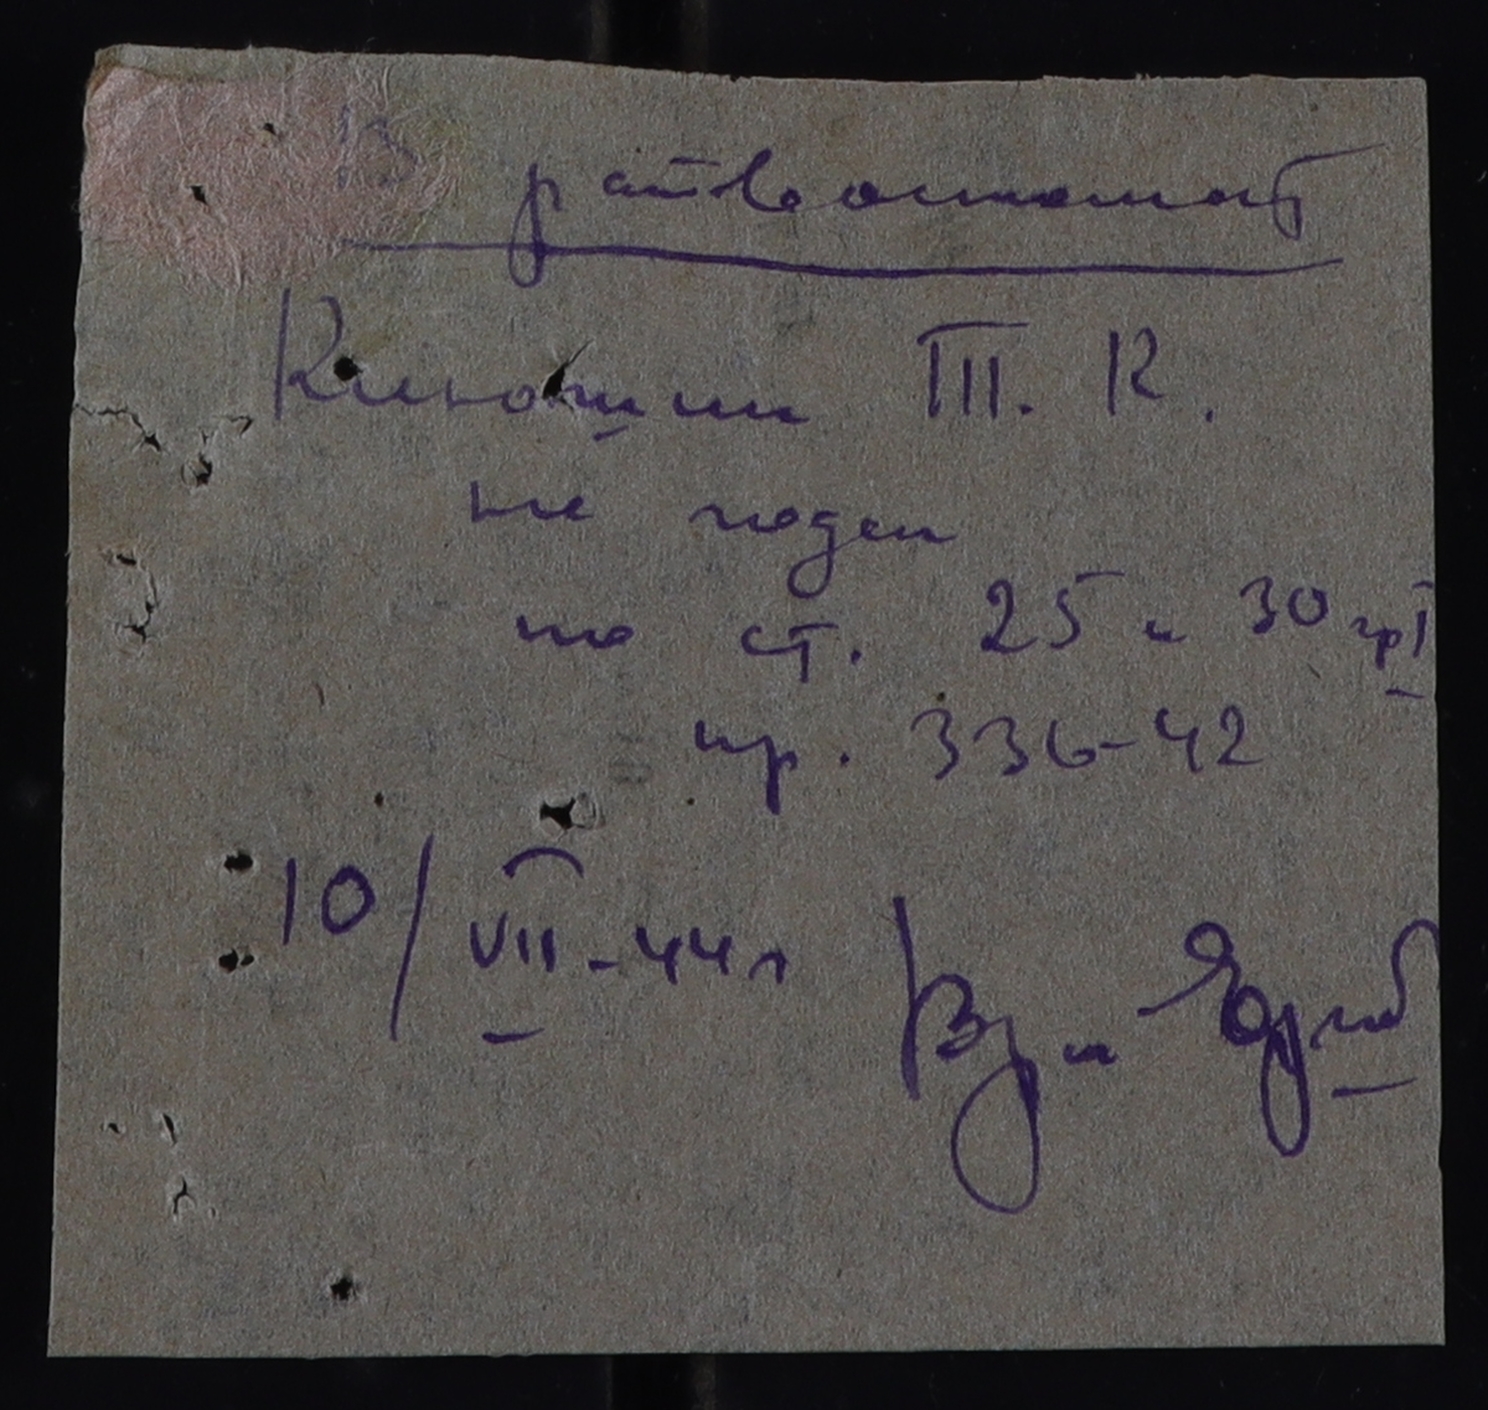 В райвоенкомат
Кинощин Ш. К.
не годен
по ст. 25 и 30 гр I
пр. 336-42
10/VII-44 г